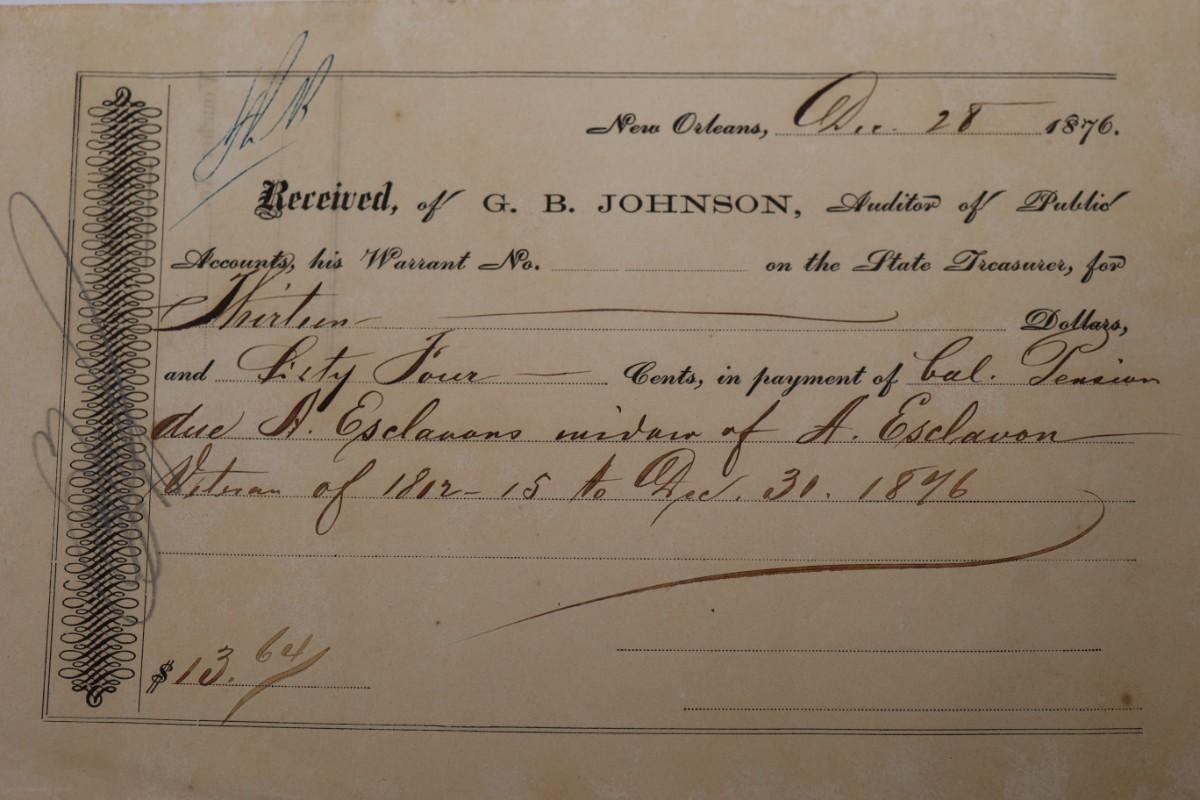 New Orleans, Dec. 28 1876.
Received, of G. B. JOHNSON, Auditor of Public
Accounts, his Warrant No. on the State Treasurer, for
Thirteen Dollars,
and Sixty Four Cents, in payment of Bal. Pension
due A. Esclavons widow of A. Esclavon
Veteran of 1812-15 to Dec. 30. 1876
$13.64